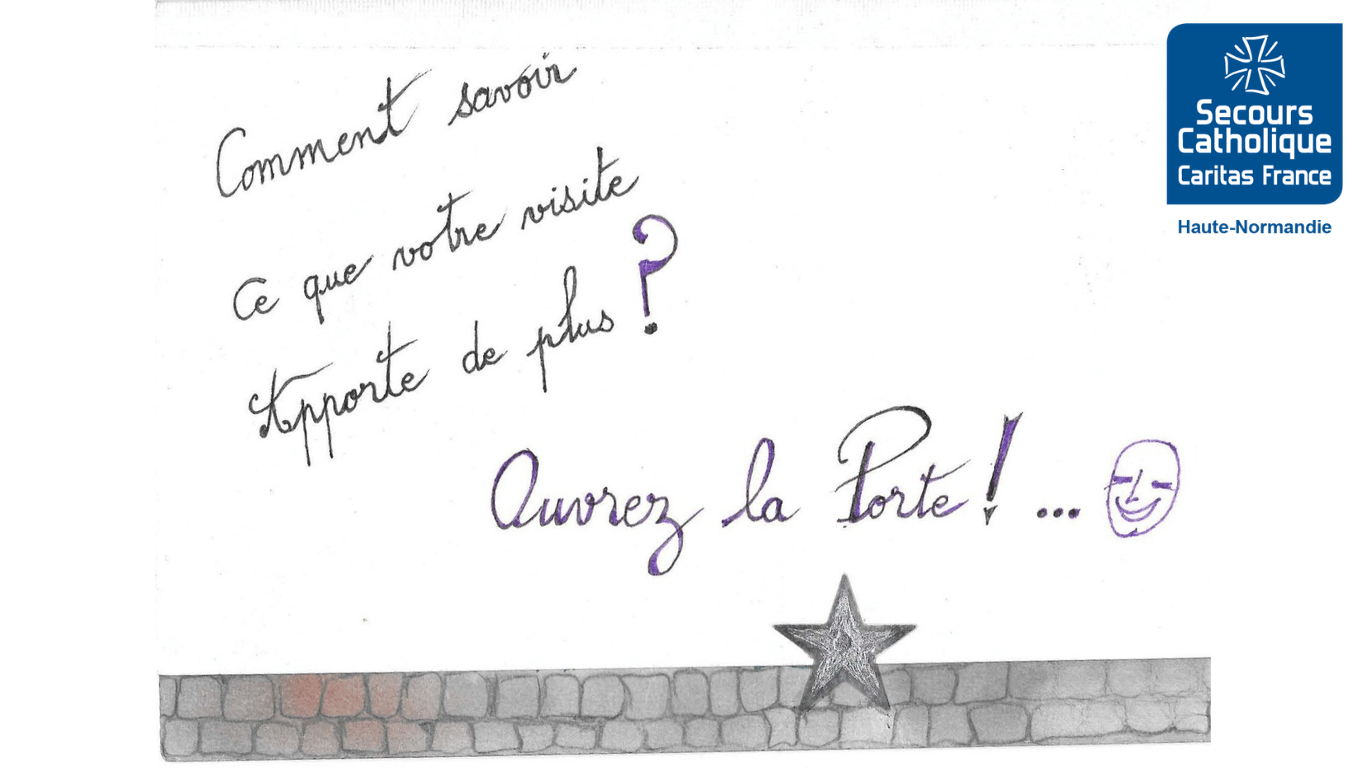 Comment savoir
ce que votre visite
Apporte de plus ?
Ouvrez la Porte ! ...
Secours
Catholique
Caritas France
Haute-Normandie